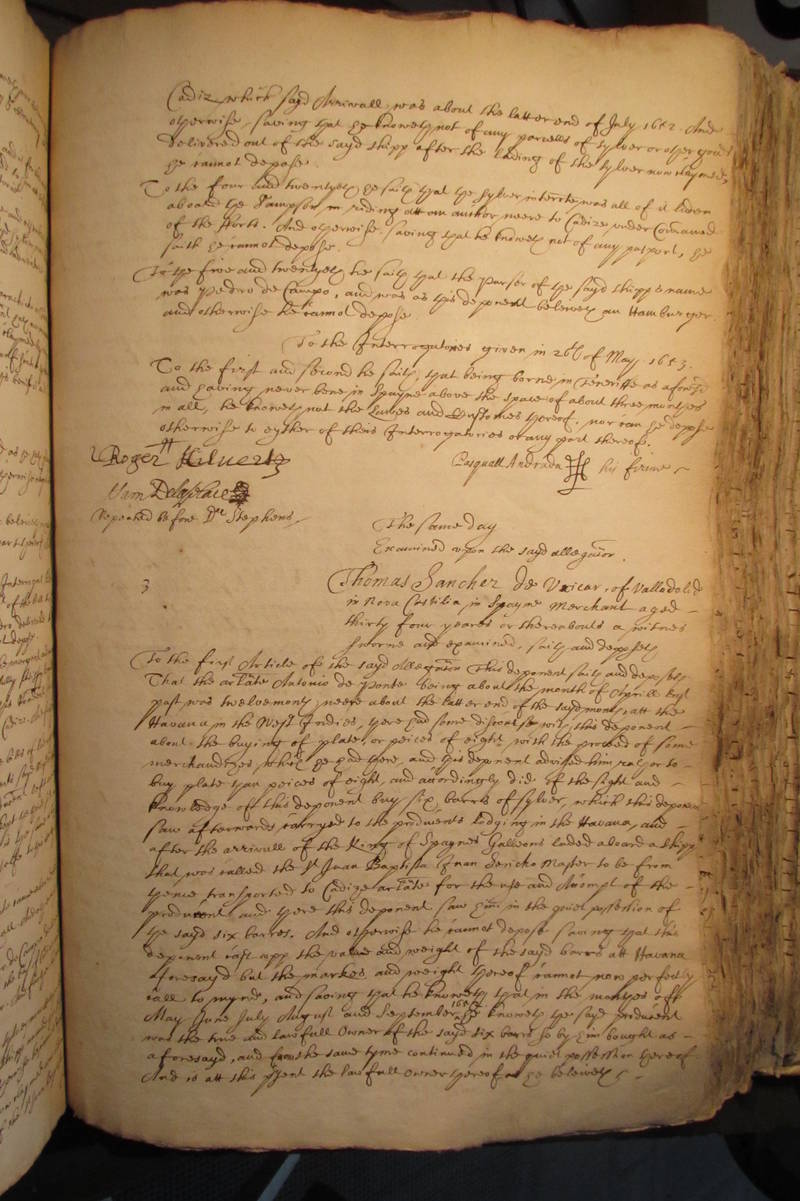 Cadiz, which sayd Arrivall was about the latter end of July 1652. And
otherwise saving that hee knoweth not of any parcells of sylver or other goods
delivered out of the sayd shipp after the lading of the sylver now claymed,
hee cannot depose.
To the four and twentyeth hee saith that the sylver interrate was all of it laden
aboard the Sampson in riding att an anchor neere to Cadize under Command
of the fforts. And otherwise saving that he knoweth not of any pasport, hee
saith hee cannot depose.
To the five and twentyeth he saith that the Purser of the sayd shipps name
was Pedro de Campo, and was as this deponent beleiveth an Hamburger.
and otherwise he cannot depose.
To the Interrogatories given in 26th of May 1653.
To the first and second he saith, that being borne in Teneriffe as aforesd
and having never bene in Spayne above the space of about three monthes
in all, he knoweth not the Lawes and Customes thereof. nor can hee depose
otherwise to eyther of theis Interrogatories or any part thereof.
Roger Kilvert
Pasquall Andrada his firme
Repeated before Dr Stephens
The same day
Examined upon the sayd allegation.
3
Thomas Sancher de Vxicar, of Valladolid
in Nova Castilia, in Spayne Merchant aged
thirty four yeares or thereabouts a witnes
sworne and examined, saith and deposeth
To the first Article of the sayd Allegation This deponent saith and deposeth
That the arlate Antonio de Ponte being about the month of Aprill last
past was twelvemonth neere about the latter end of the sayd month, att the
Havana, in the West Indies, there had some discourse with this deponent
about the buying of plate, or peices of eight, with the proceed of some
merchandizes, which hee had there, and this deponent advised him rather to
buy plate than peices of eight, and accordingly did of the sight and
knowledge of this deponent buy six barrs of sylver, which this deponent
saw afterwards carryed to the producents lodging in the Havana, and
after the arrivall of the King of Spaynes Galleons laded aboard a shipp
that was called the St Juan Baptista, Ignan Sericho Master to be from
thence transported to Cadize arlate for the use and Accompt of the
producent, and there this deponent saw him in the quiet possession of
the sayd six barres. And otherwise he cannot depose saving that this
deponent cast upp the value and weight of the sayd barrs att Havana
aforesayd but the markes and weight thereof cannot now perfectly
call to mynde, and saving that he knoweth that in the monthes of
May June July August and September 1652 hee knoweth the sayd producent
was the true and lawfull Owner of the sayd six barrs so by him bought as
aforesayd, and from the same tyme continued in the quiet possession thereof
And is att this present the lawfull owner thereof as hee beleiveth